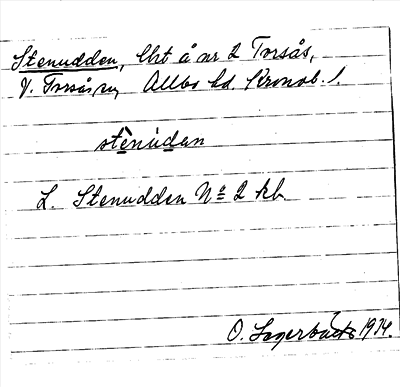 Stenudden, lht å nr 2 Torsås,
V. Torsås sn Allbo hd. Kronob. l.
stènúdan
L. Stenudden No 2 kb.
O. Lagerbäck 1934.